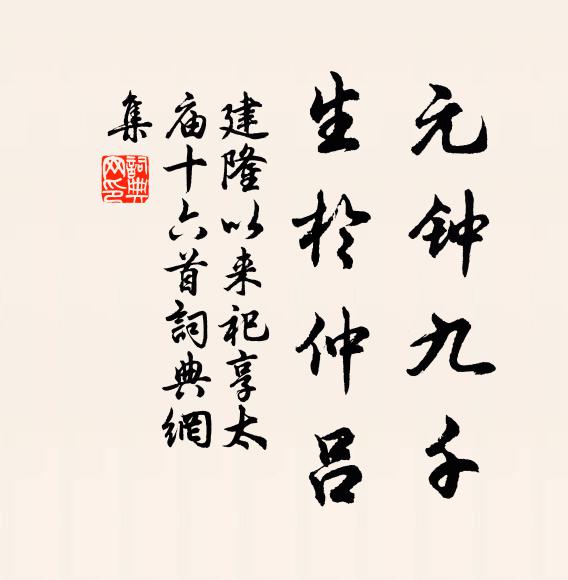 元钟九千
生於仲吕
建隆以来祀享太
庙十六首詞典網
集
詞典
网印